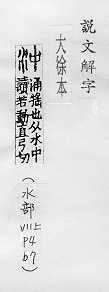 說文解字
大徐本
沖 涌搖也从水中
讀若動直弓切
（水部
VIII上
P4
b7）